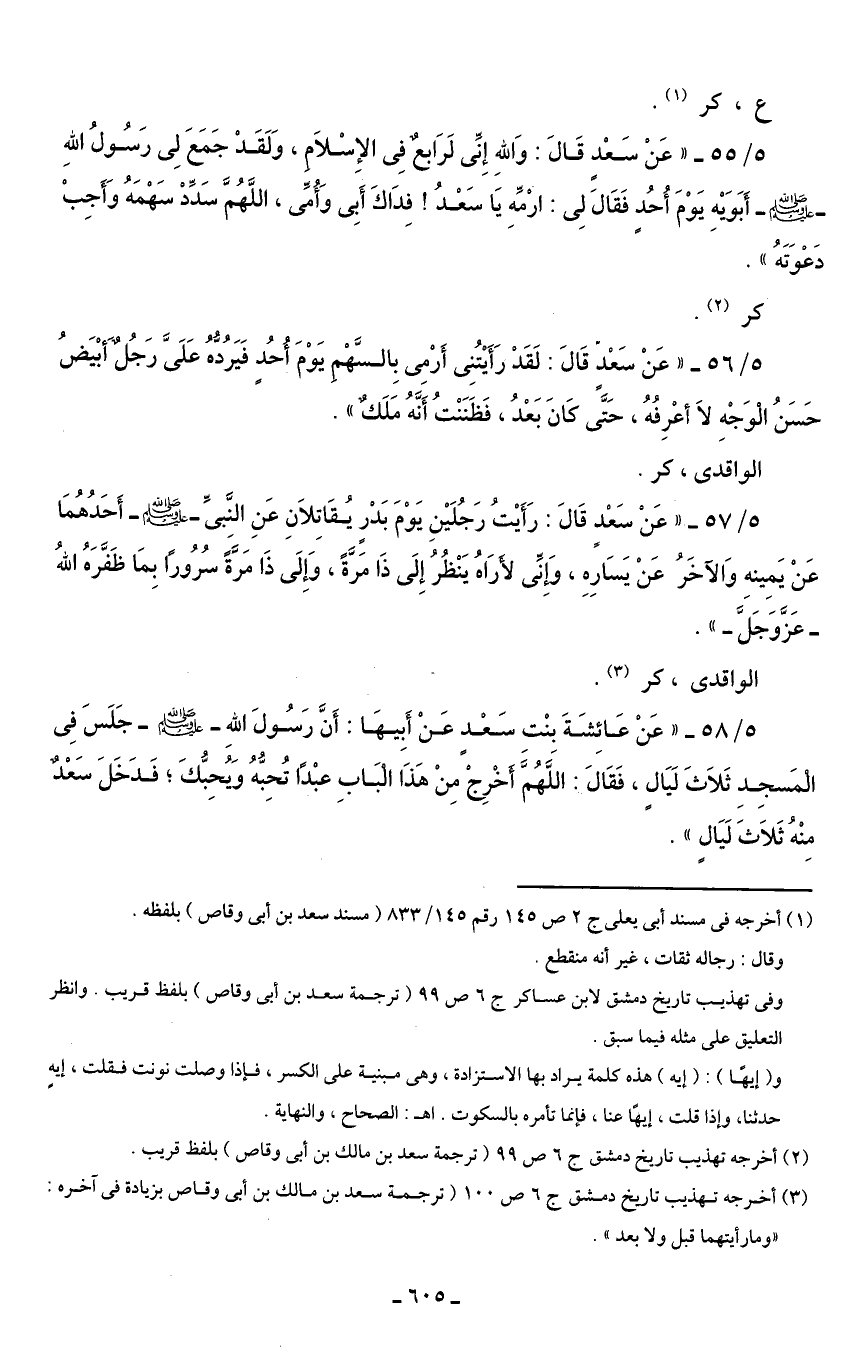 ع ، كر (١) .
٥/ ٥٥ ـ « عَنْ سَعْدٍ قَالَ : وَاللهِ إِنِّى لَرَابِعٌ فِى الإِسْلاَمِ ، وَلَقَدْ جَمَعَ لِى رَسُولُ اللهِ
ـ ﷺ ـ أَبَوَيْهِ يَوْمَ أُحُدٍ فَقَالَ لِى : ارْمِهِ يَا سَعْدُ ! فِدَاكَ أَبِى وَأُمِّى ، اللَّهُمَّ سَدِّدْ سَهْمَهُ وَأَجِبْ
دَعْوَتَهُ » .
كر (٢) .
٥/ ٥٦ ـ « عَنْ سَعْدٍ قَالَ : لَقَدْ رَأَيْتُنِى أَرْمِى بِالسَّهْمِ يَوْمَ أُحُدٍ فَيَرُدُّهُ عَلَىَّ رَجُلٌ أَبْيَضُ
حَسَنُ الْوَجْهِ لاَ أَعْرِفُهُ ، حَتَّى كَانَ بَعْدُ ، فَظَنَنْتُ أَنَّهُ مَلَكٌ » .
الواقدى ، كر .
٥/ ٥٧ ـ « عَنْ سَعْدٍ قَالَ : رَأَيْتُ رَجُلَيْنِ يَوْمَ بَدْرٍ يُقَاتِلاَنِ عَنِ النَّبِىِّ ـ ﷺ ـ أَحَدُهُمَا
عَنْ يَمِينِهِ وَالآخَرُ عَنْ يَسَارِهِ ، وَإِنِّى لأَرَاهُ يَنْظُرُ إِلَى ذَا مَرَّةً ، وَإِلَى ذَا مَرَّةً سُرُورًا بِمَا ظَفَّرَهُ اللهُ
ـ عَزَّ وَجَلَّ ـ » .
الواقدى ، كر (٣) .
٥/ ٥٨ ـ « عَنْ عَائِشَةَ بِنْتِ سَعْدٍ عَنْ أَبِيهَا : أَنَّ رَسُولَ اللهِ ـ ﷺ ـ جَلَسَ فِى
الْمَسْجِدِ ثَلاَثَ لَيَالٍ ، فَقَالَ : اللَّهُمَّ أَخْرِجْ مِنْ هَذَا الْبَابِ عَبْدًا تُحِبُّهُ وَيُحِبُّكَ ؛ فَدَخَلَ سَعْدٌ
مِنْهُ ثَلاَثَ لَيَالٍ » .
(١) أخرجه فى مسند أبى يعلى ج ٢ ص ١٤٥ رقم ١٤٥/ ٨٣٣ ( مسند سعد بن أبى وقاص ) بلفظه .
وقال : رجاله ثقات ، غير أنه منقطع .
وفى تهذيب تاريخ دمشق لابن عساكر ج ٦ ص ٩٩ ( ترجمة سعد بن أبى وقاص ) بلفظ قريب . وانظر
التعليق على مثله فيما سبق .
و( إيهًا ) : ( إيه ) هذه كلمة يراد بها الاستزادة ، وهى مبنية على الكسر ، فإذا وصلت نونت فقلت ، إيهٍ
حدثنا، وإذا قلت ، إيهًا عنا ، فإنما تأمره بالسكوت . اهـ : الصحاح ، والنهاية .
(٢) أخرجه تهذيب تاريخ دمشق ج ٦ ص ٩٩ ( ترجمة سعد بن مالك بن أبى وقاص ) بلفظ قريب .
(٣) أخرجه تهذيب تاريخ دمشق ج ٦ ص ١٠٠ ( ترجمة سعد بن مالك بن أبى وقاص بزيادة فى آخره :
«ومارأيتهما قبل ولا بعد » .
ـ ٦٠٥ ـ